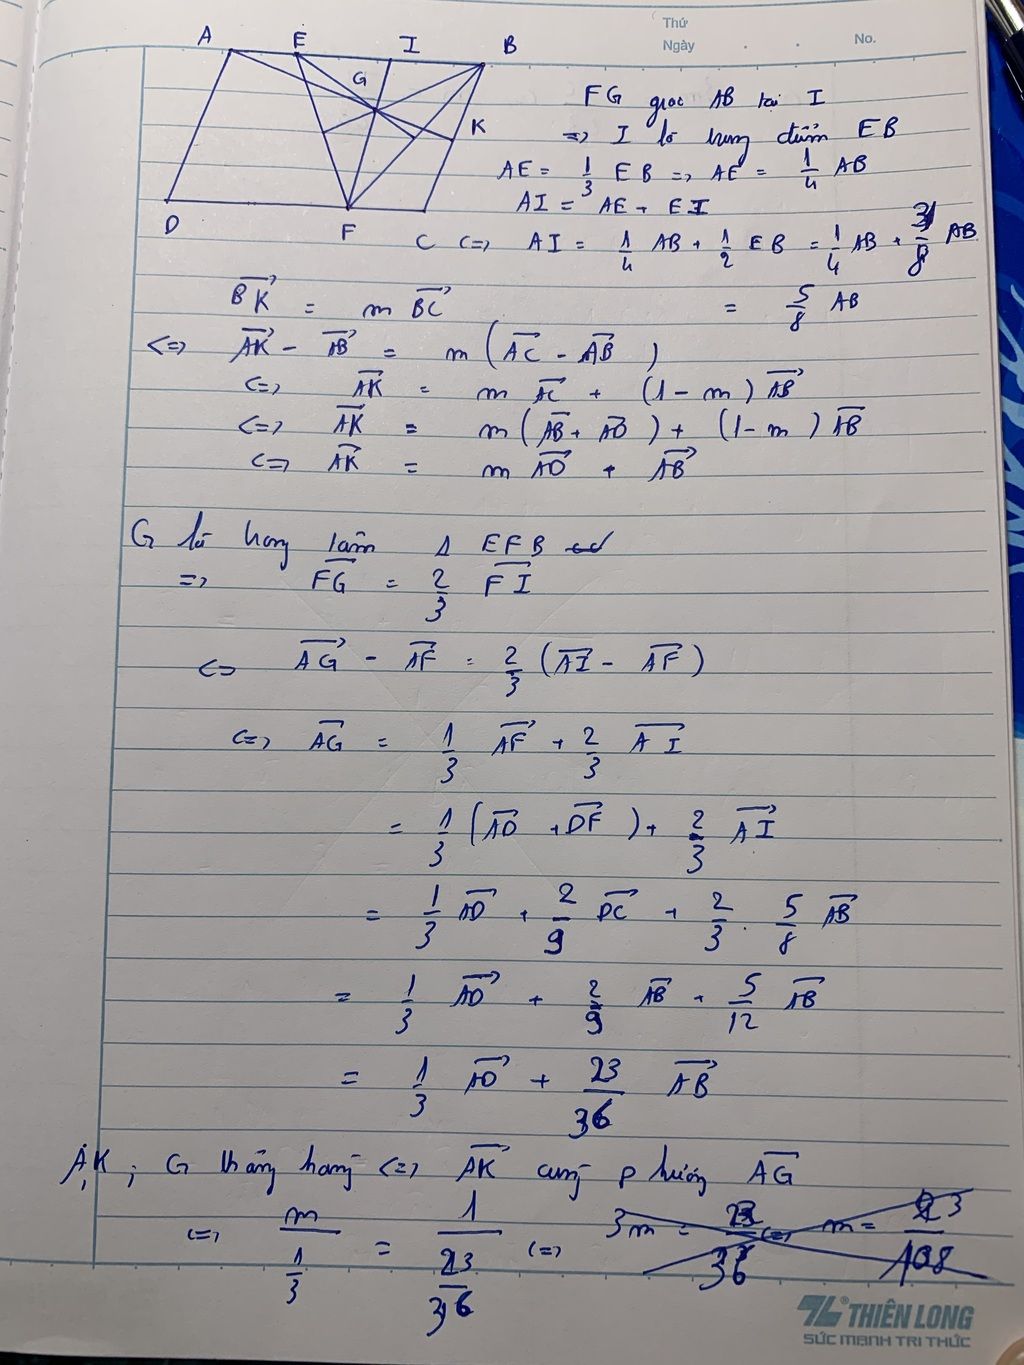 Thứ
Ngày . . No.
A E I B
G
K
D F C
FG giao AB tại I
=> I là trung điểm EB
AE = 1/3 EB => AE = 1/4 AB
AI = AE + EI
<=> AI = 1/4 AB + 1/2 EB = 1/4 AB + 3/8 AB
= 5/8 AB
BK = m BC
<=> AK - AB = m (AC - AB)
<=> AK = m AC + (1 - m) AB
<=> AK = m (AB + AD) + (1 - m) AB
<=> AK = m AD + AB
G là trọng tâm Δ EFB
=> FG = 2/3 FI
<=> AG - AF = 2/3 (AI - AF)
<=> AG = 1/3 AF + 2/3 AI
= 1/3 (AD + DF) + 2/3 AI
= 1/3 AD + 2/9 DC + 2/3 . 5/8 AB
= 1/3 AD + 2/9 AB + 5/12 AB
= 1/3 AD + 23/36 AB
A, K, G thẳng hàng <=> AK cùng phương AG
<=> m / (1/3) = 1 / (23/36) <=> 3m = 23/36 <=> m = 23/108
THIÊN LONG
SỨC MẠNH TRI THỨC